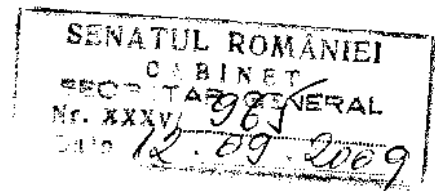 SENATUL ROMÂNIEI
CABINET
SECRETAR GENERAL
Nr. XXXV/ 965
Data 12.09.2009